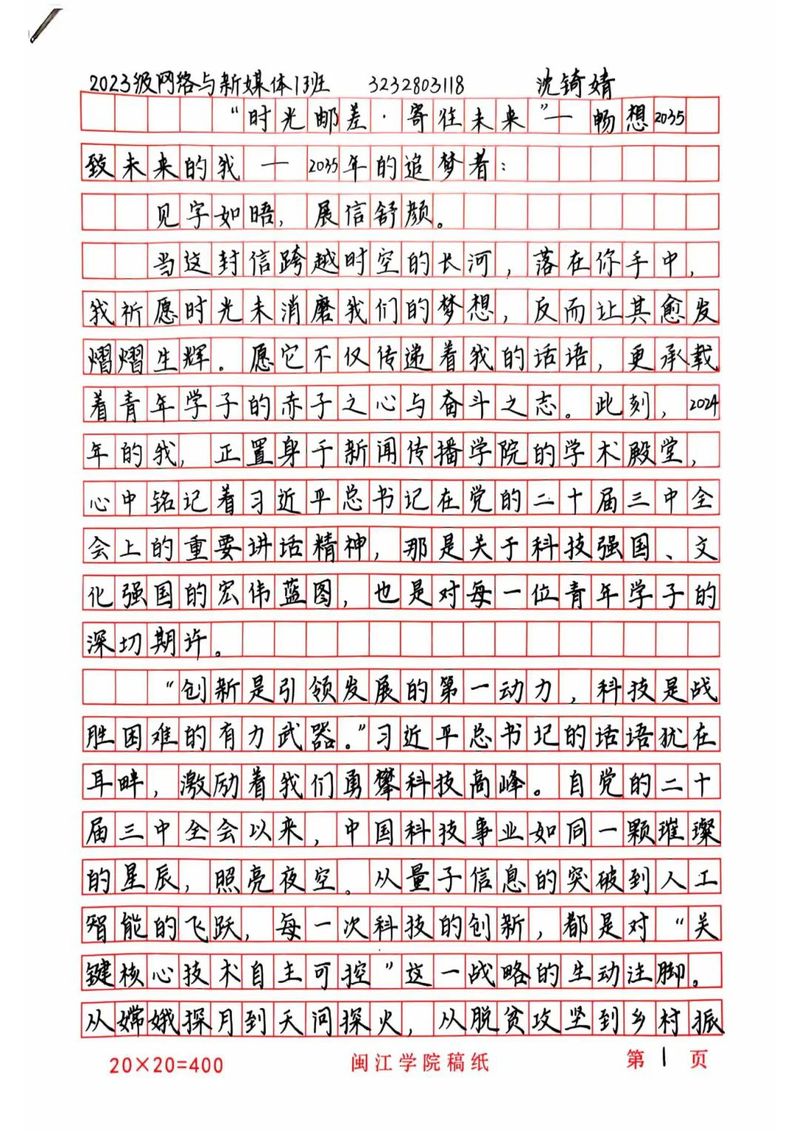 2023级网络与新媒体1班 3232803118 沈锜婧
“时光邮差·寄往未来”— 畅想2035
致未来的我 — 2035年的追梦者：
见字如晤，展信舒颜。
当这封信跨越时空的长河，落在你手中，
我祈愿时光未消磨我们的梦想，反而让其愈发
熠熠生辉。愿它不仅传递着我的话语，更承载
着青年学子的赤子之心与奋斗之志。此刻，2024
年的我，正置身于新闻传播学院的学术殿堂，
心中铭记着习近平总书记在党的二十届三中全
会上的重要讲话精神，那是关于科技强国、文
化强国的宏伟蓝图，也是对每一位青年学子的
深切期许。
“创新是引领发展的第一动力，科技是战
胜困难的有力武器。”习近平总书记的话语犹在
耳畔，激励着我们勇攀科技高峰。自党的二十
届三中全会以来，中国科技事业如同一颗璀璨
的星辰，照亮夜空。从量子信息的突破到人工
智能的飞跃，每一次科技的创新，都是对“关
键核心技术自主可控”这一战略的生动注脚。
从嫦娥探月到天问探火，从脱贫攻坚到乡村振
20×20=400 闽江学院稿纸 第1页